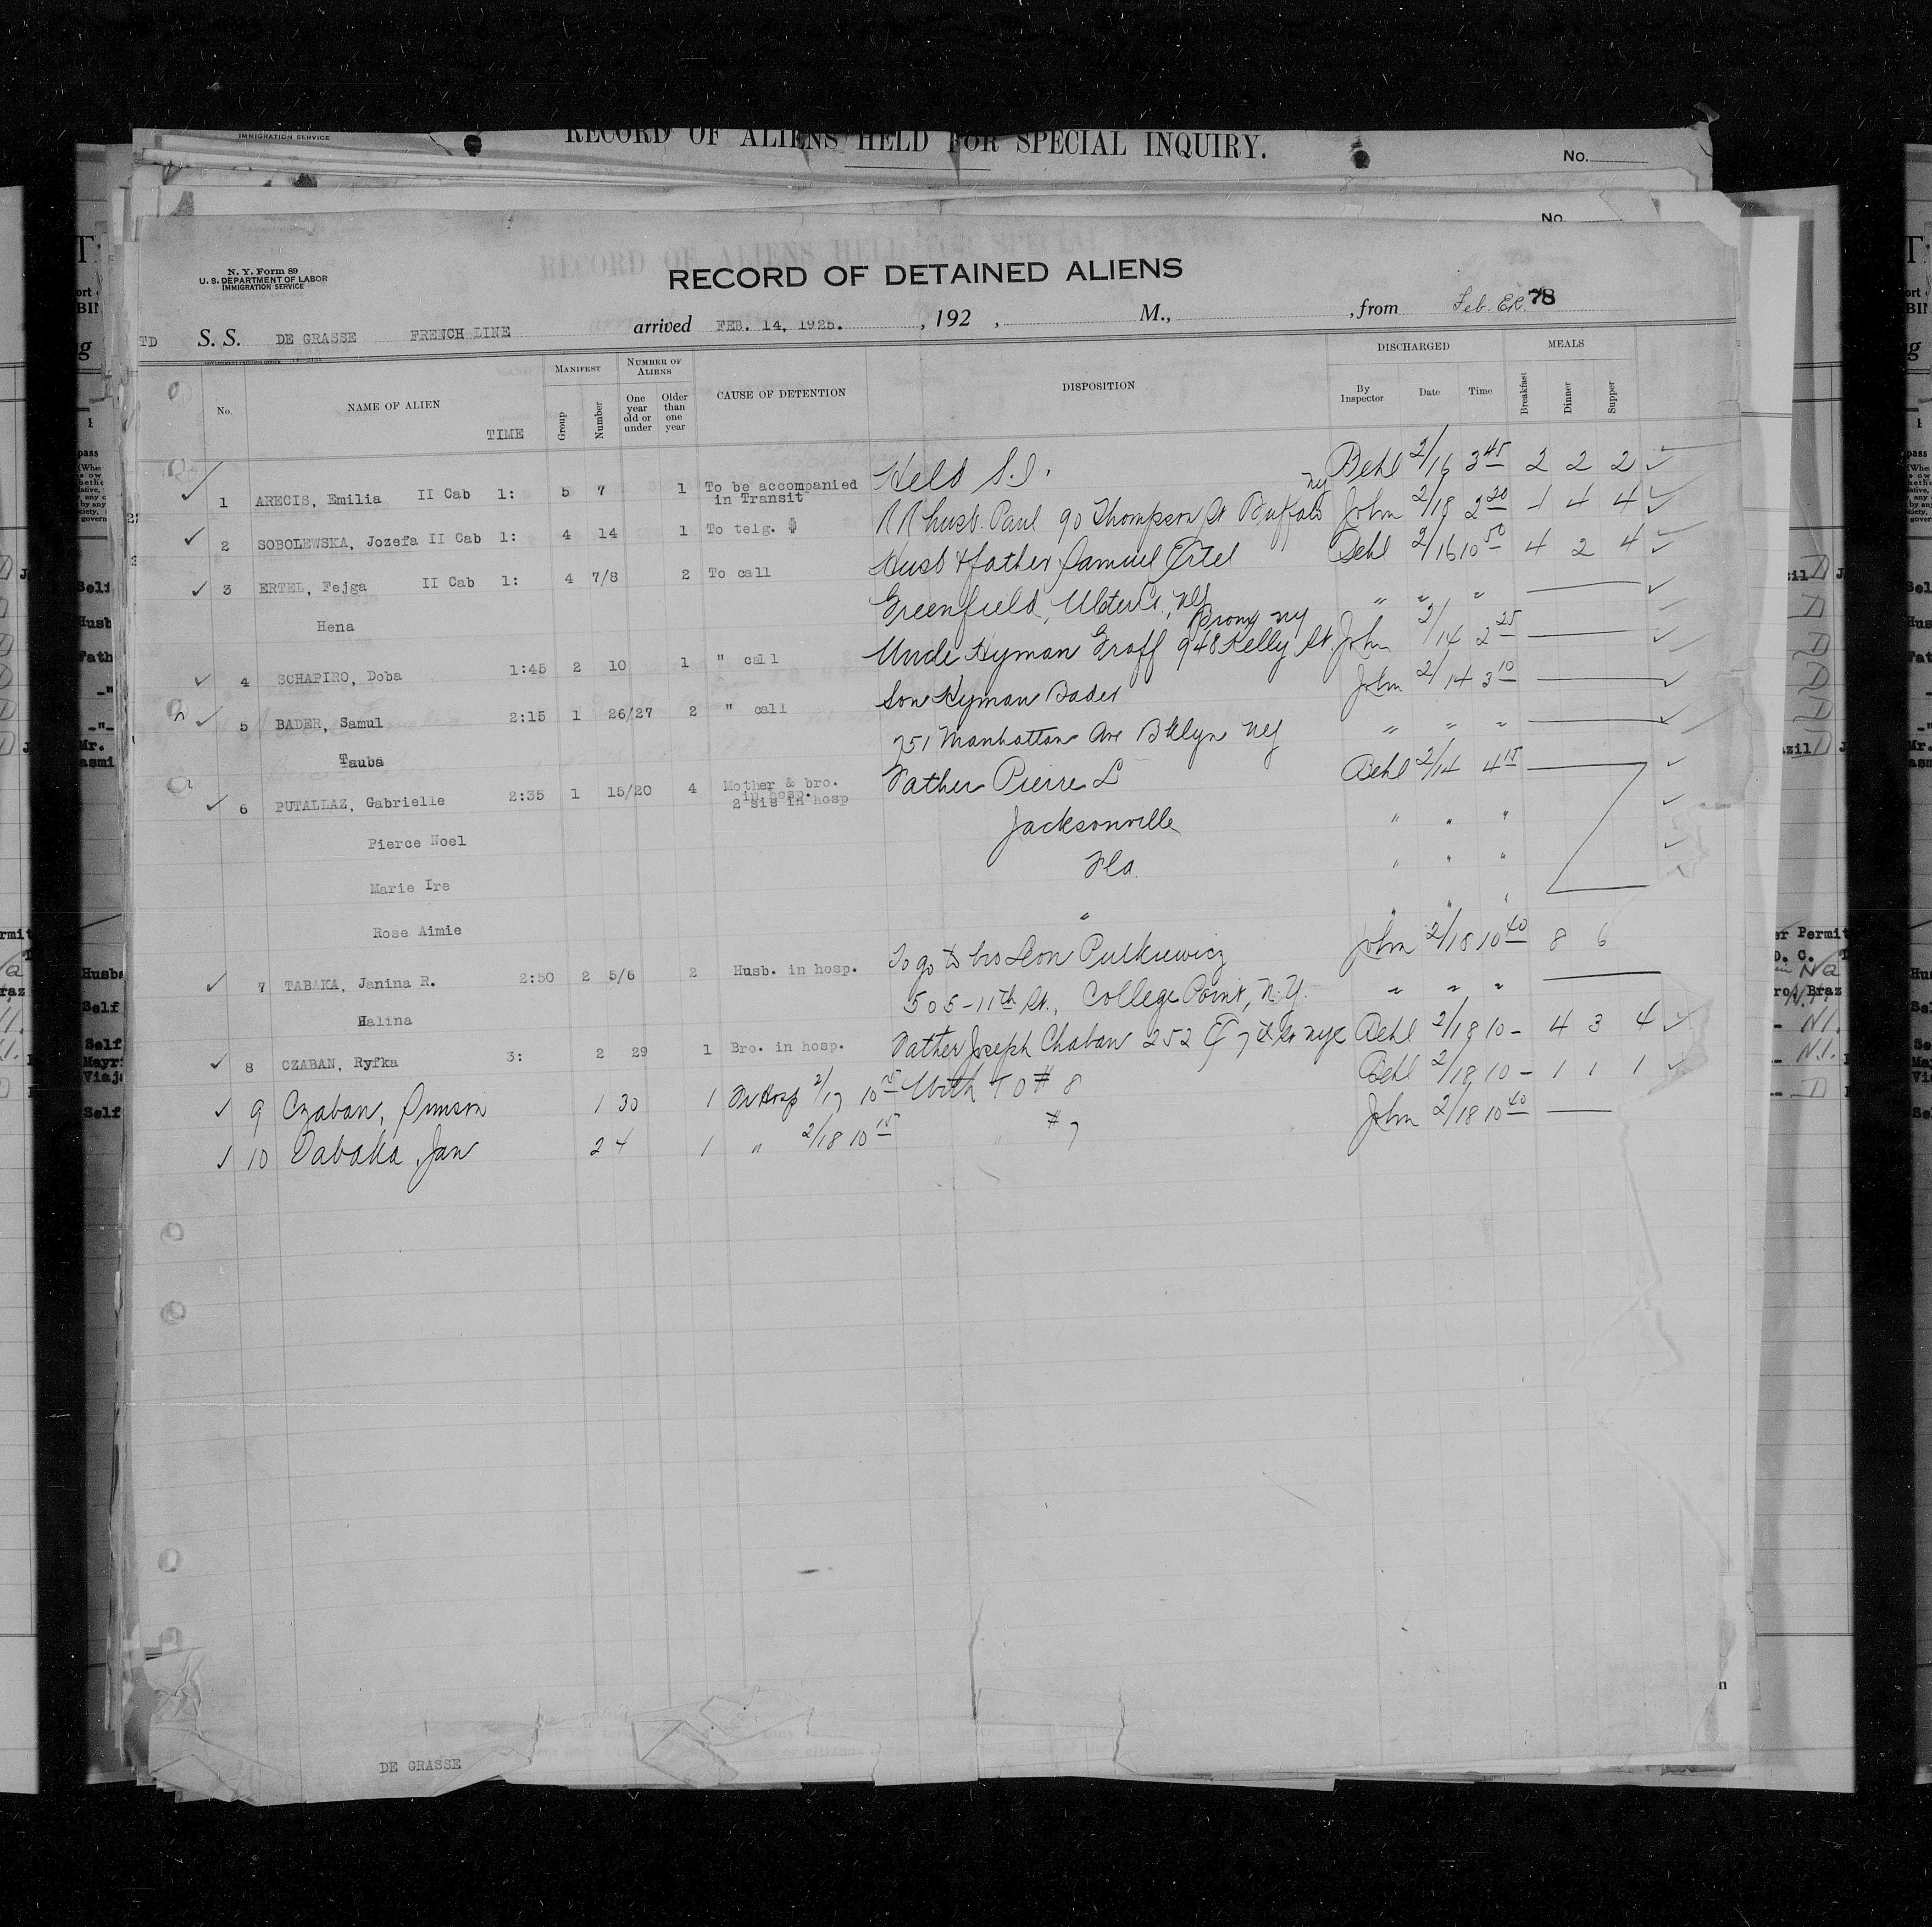 IMMIGRATION SERVICE
RECORD OF ALIENS HELD FOR SPECIAL INQUIRY.
No.
No.
N. Y. Form 89
U. S. DEPARTMENT OF LABOR
IMMIGRATION SERVICE
RECORD OF DETAINED ALIENS
TD S. S. DE GRASSE FRENCH LINE arrived FEB. 14, 1925. , 192 , M., , from Feb. ER. 78
No. NAME OF ALIEN TIME MANIFEST Group Number NUMBER OF ALIENS One year old or under Older than one year CAUSE OF DETENTION DISPOSITION DISCHARGED By Inspector Date Time MEALS Breakfast Dinner Supper
1 ARECIS, Emilia II Cab 1: 5 7 1 To be accompanied in Transit Held S.I. Behl 2/16 3 45 2 2 2
2 SOBOLEWSKA, Jozefa II Cab 1: 4 14 1 To telg. $ RR husb. Paul 90 Thompson St Buffalo NY John 2/18 2 20 1 4 4
3 ERTEL, Fejga II Cab 1: 4 7/8 2 To call Husb & father Samuel Ertel Behl 2/16 10 50 4 2 4
Hena Greenfield, Ulster Co., NY " " "
4 SCHAPIRO, Doba 1:45 2 10 1 " call Uncle Hyman Graff 948 Kelly St. Bronx NY John 2/14 2 25
5 BADER, Samul 2:15 1 26/27 2 " call Son Hyman Bader John 2/14 3 10
Tauba 751 Manhattan Ave Bklyn NY " " "
6 PUTALLAZ, Gabrielle 2:35 1 15/20 4 Mother & bro. in hosp. 2 sis in hosp Father Pierre L Behl 2/14 4 15
Pierce Noel Jacksonville " " "
Marie Ire Fla. " " "
Rose Aimie " " " "
7 TABAKA, Janina R. 2:50 2 5/6 2 Husb. in hosp. To go to bro Leon Pulkiewicz John 2/18 10 40 8 6
Halina 505-11th St., College Point, N.Y. " " "
8 CZABAN, Ryfka 3: 2 29 1 Bro. in hosp. Father Joseph Chaban 252 E 7th St NYC Behl 2/18 10 - 4 3 4
9 Czaban, Simson 1 30 1 In Hosp 2/17 10 15 With TD # 8 Behl 2/18 10 - 1 1 1
10 Tabaka, Jan 2 4 1 " 2/18 10 15 " # 7 John 2/18 10 40
DE GRASSE